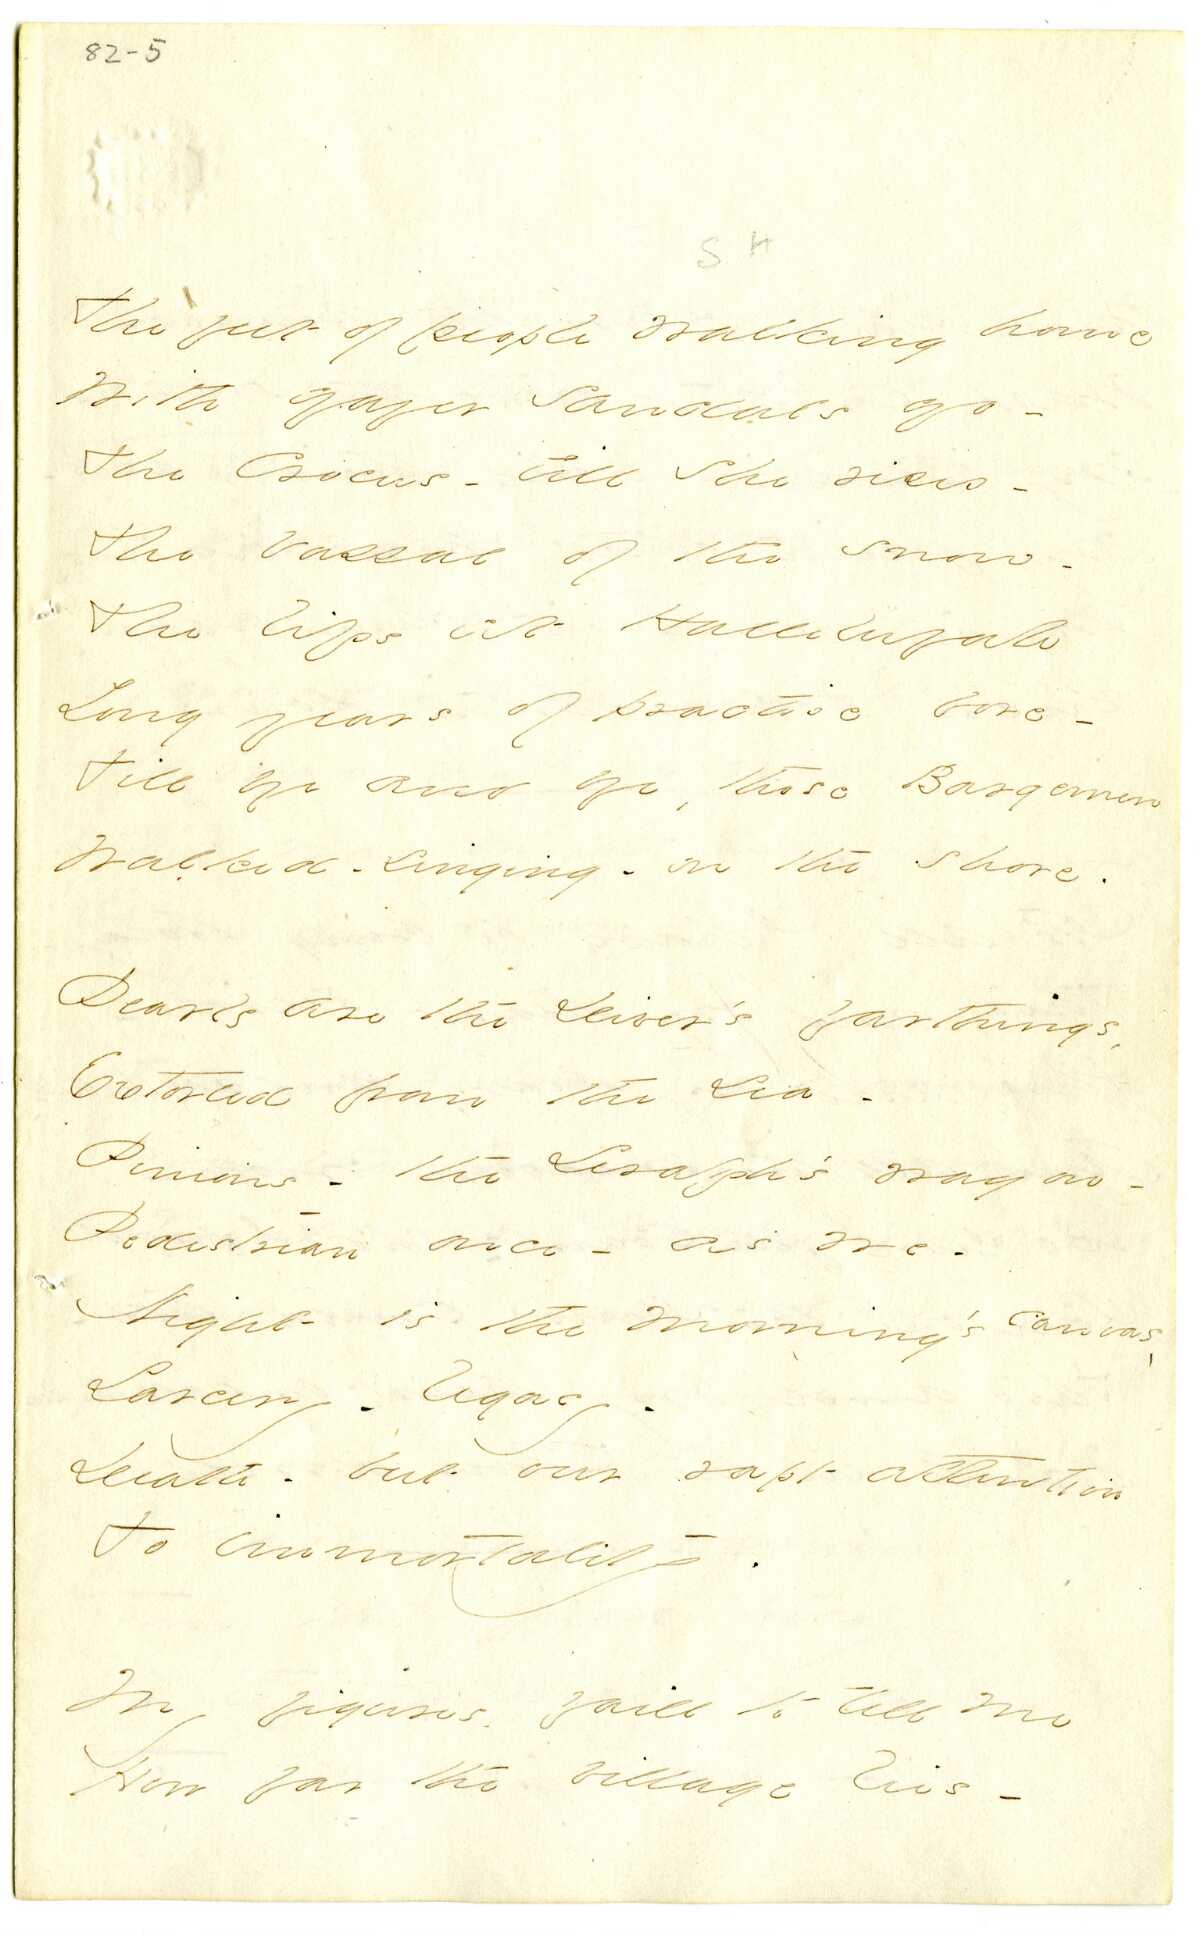 82-5
S H
The feet of people walking home
With gayer Sandals go -
The Crocus - till she rises -
The Vassal of the snow -
The lips at Hallelujah
Long years of practise bore -
Till bye and bye, these Bargemen
Walked - singing - on the shore.
Pearls are the Diver's farthings,
Extorted from the Sea -
Pinions - the Seraph's wagon -
Pedestrian once - as we -
Night is the morning's canvas,
Larceny - legacy -
Death - but our rapt attention
To immortality.
My figures fail to tell me
How far the village lies -